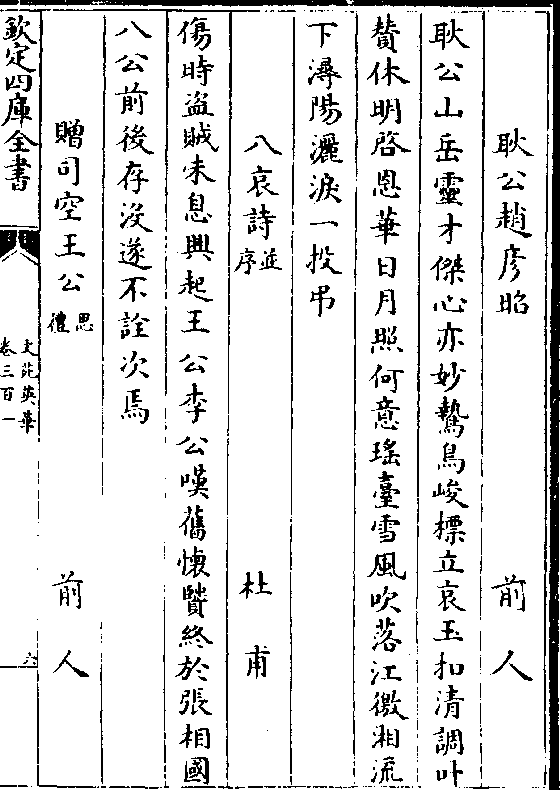 耿公趙彦昭　前人
耿公山岳靈才傑心亦妙鷙鳥峻標立哀玉扣清調叶
賛休明啓恩華日月照何意瑤臺雪風吹落江徼湘流
下潯陽灑淚一投弔
八哀詩並序　杜甫
傷時盗賊未息興起王公李公嘆舊懷賢終於張相國
八公前後存沒遂不詮次焉
贈司空王公思禮　前人
欽定四庫全書
文苑英華
卷三百一
六